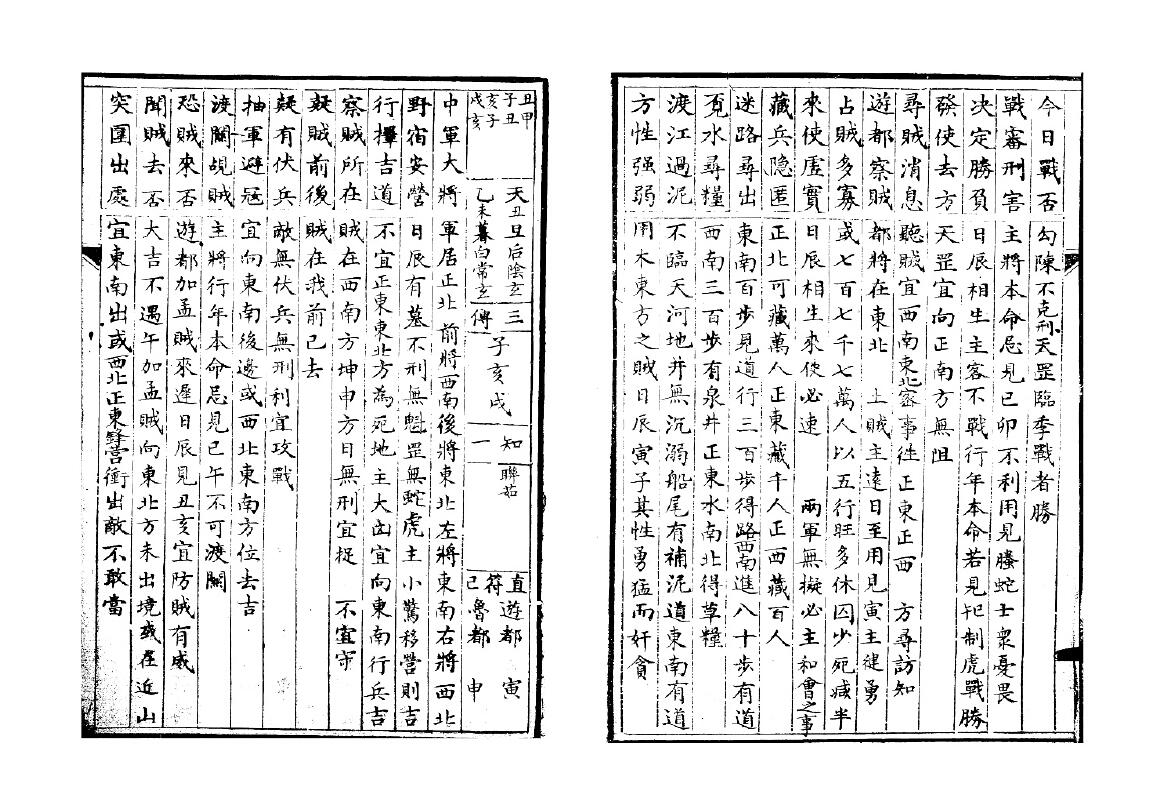 今日戰否 勾陳不克刑天罡臨季戰者勝
戰審刑害 主將本命忌見巳卯不利用見螣蛇士衆憂畏
决定勝負 日辰相生主客不戰行年本命若見制虎戰勝
發使去方 天罡宜向正南方無阻
尋賊消息 聽賊宜西南東北家事徃正東正西 方尋訪知
遊都察賊 都將在東北 主賊主遠日至用見寅主健勇
占賊多寡 或七百七千七萬人以五行旺多休囚少死减半
來使虛實 日辰相生來使必速 兩軍無擬必主和會之事
藏兵隱匿 正北可藏萬人正東藏千人正西藏百人
迷路尋出 東南百步見道行三百步得路西南進八十步有道
覓水尋糧 西南三百步有泉井正東水南北得草糧
渡江過泥 不臨天河地井無沉溺船尾有補泥道東南有道
方性强弱 用木東方之賊日辰寅子其性勇猛而奸貪
丑甲
子丑
亥子
戌亥
天 丑旦后陰玄
乙未暮白常玄
三傳 子亥戌
知一 聯茹
直符 巳
遊都 寅
魯都 申
中軍大將 軍居正北前將西南後將東北左將東南右將西北
野宿安營 日辰有墓不刑無魁罡無蛇虎主小驚移營則吉
行擇吉道 不宜正東東北方為死地主大凶宜向東南行兵吉
察賊所在 賊在西南方坤申方日無刑宜捉 不宜守
疑賊前後 賊在我前已去
疑有伏兵 敵無伏兵無刑利宜攻戰
抽軍避冦 宜向東南後邊或西北東南方位去吉
渡關覘賊 主將行年本命忌見巳午不可渡關
恐賊來否 遊都加孟賊來遲日辰見丑亥宜防賊有威
聞賊去否 大吉不遇午加孟賊向東北方未出境或在近山
突圍出處 宜東南出或西北正東營衝出敵不敢當